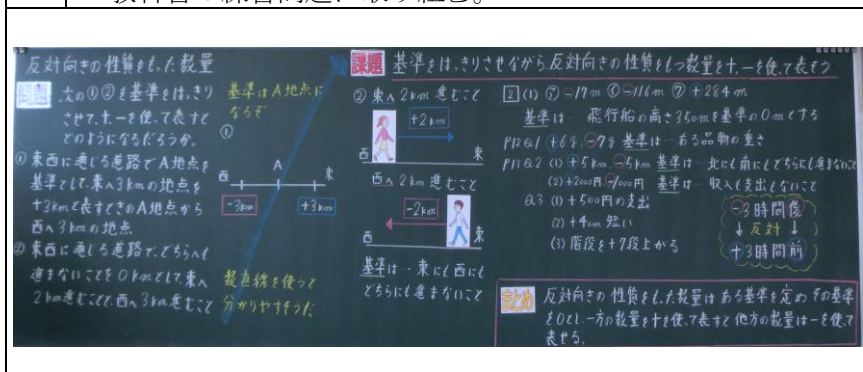 教科書の練習問題に取り組む。
反対向きの性質をもった数量
問題 次の①②を基準をはっきり
させて、+、-を使って表すと
どのようになるだろうか。
① 東西に通じる道路でA地点を
基準として、東へ3kmの地点を
+3kmと表すときのA地点から
西へ3kmの地点
② 東西に通じる道路で、どちらへも
進まないことを0kmとして、東へ
2km進むことと、西へ3km進むこと
基準はA地点に
なるぞ
①
A
西 東
-3km +3km
数直線を使うと
分かりやすそうだ
課題 基準をはっきりさせながら、反対向きの性質をもつ数量を+、-を使って表そう
② 東へ2km進むこと
+2km
西 東
西へ2km進むこと
-2km
西 東
基準は…東にも西にも
どちらにも進まないこと
2 (1) ア -17m イ -116m ウ +284m
基準は… 飛行船の高さ350mを基準の0mとする
P12Q.1 +6g、-7g 基準は…ある品物の重さ
P13Q.2 (1) +5km、-5km 基準は…北にも南にもどちらにも進まないこと
(2) +2000円、-1000円 基準は…収入も支出もないこと
Q.3 (1) +500円の支出
(2) +4cm 短い
(3) 階段を+7段上がる
-3時間後
↓反対↓
+3時間前
まとめ 反対向きの性質をもった数量は、ある基準を定め その基準
を0とし、一方の数量を+を使って表すと他方の数量は-を使って
表せる。